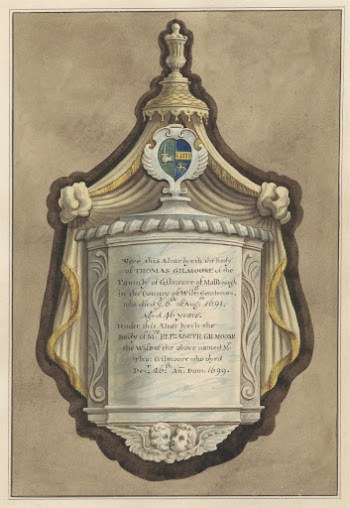 Near this Altar lyeth the Body
of THOMAS GILMOORE of the
Family of Gilmoore of Marlbrough
in the County of Wilts Gentleman,
who died yᵉ 6th of Augst 1691.
Aged 46 years.
Under this Altar lyeth the
Body of Mrs ELIZABETH GILMOOR
the Wife of the above named Mr
Tho: Gilmoore who dyed
Decr 26th An: Dom: 1699.